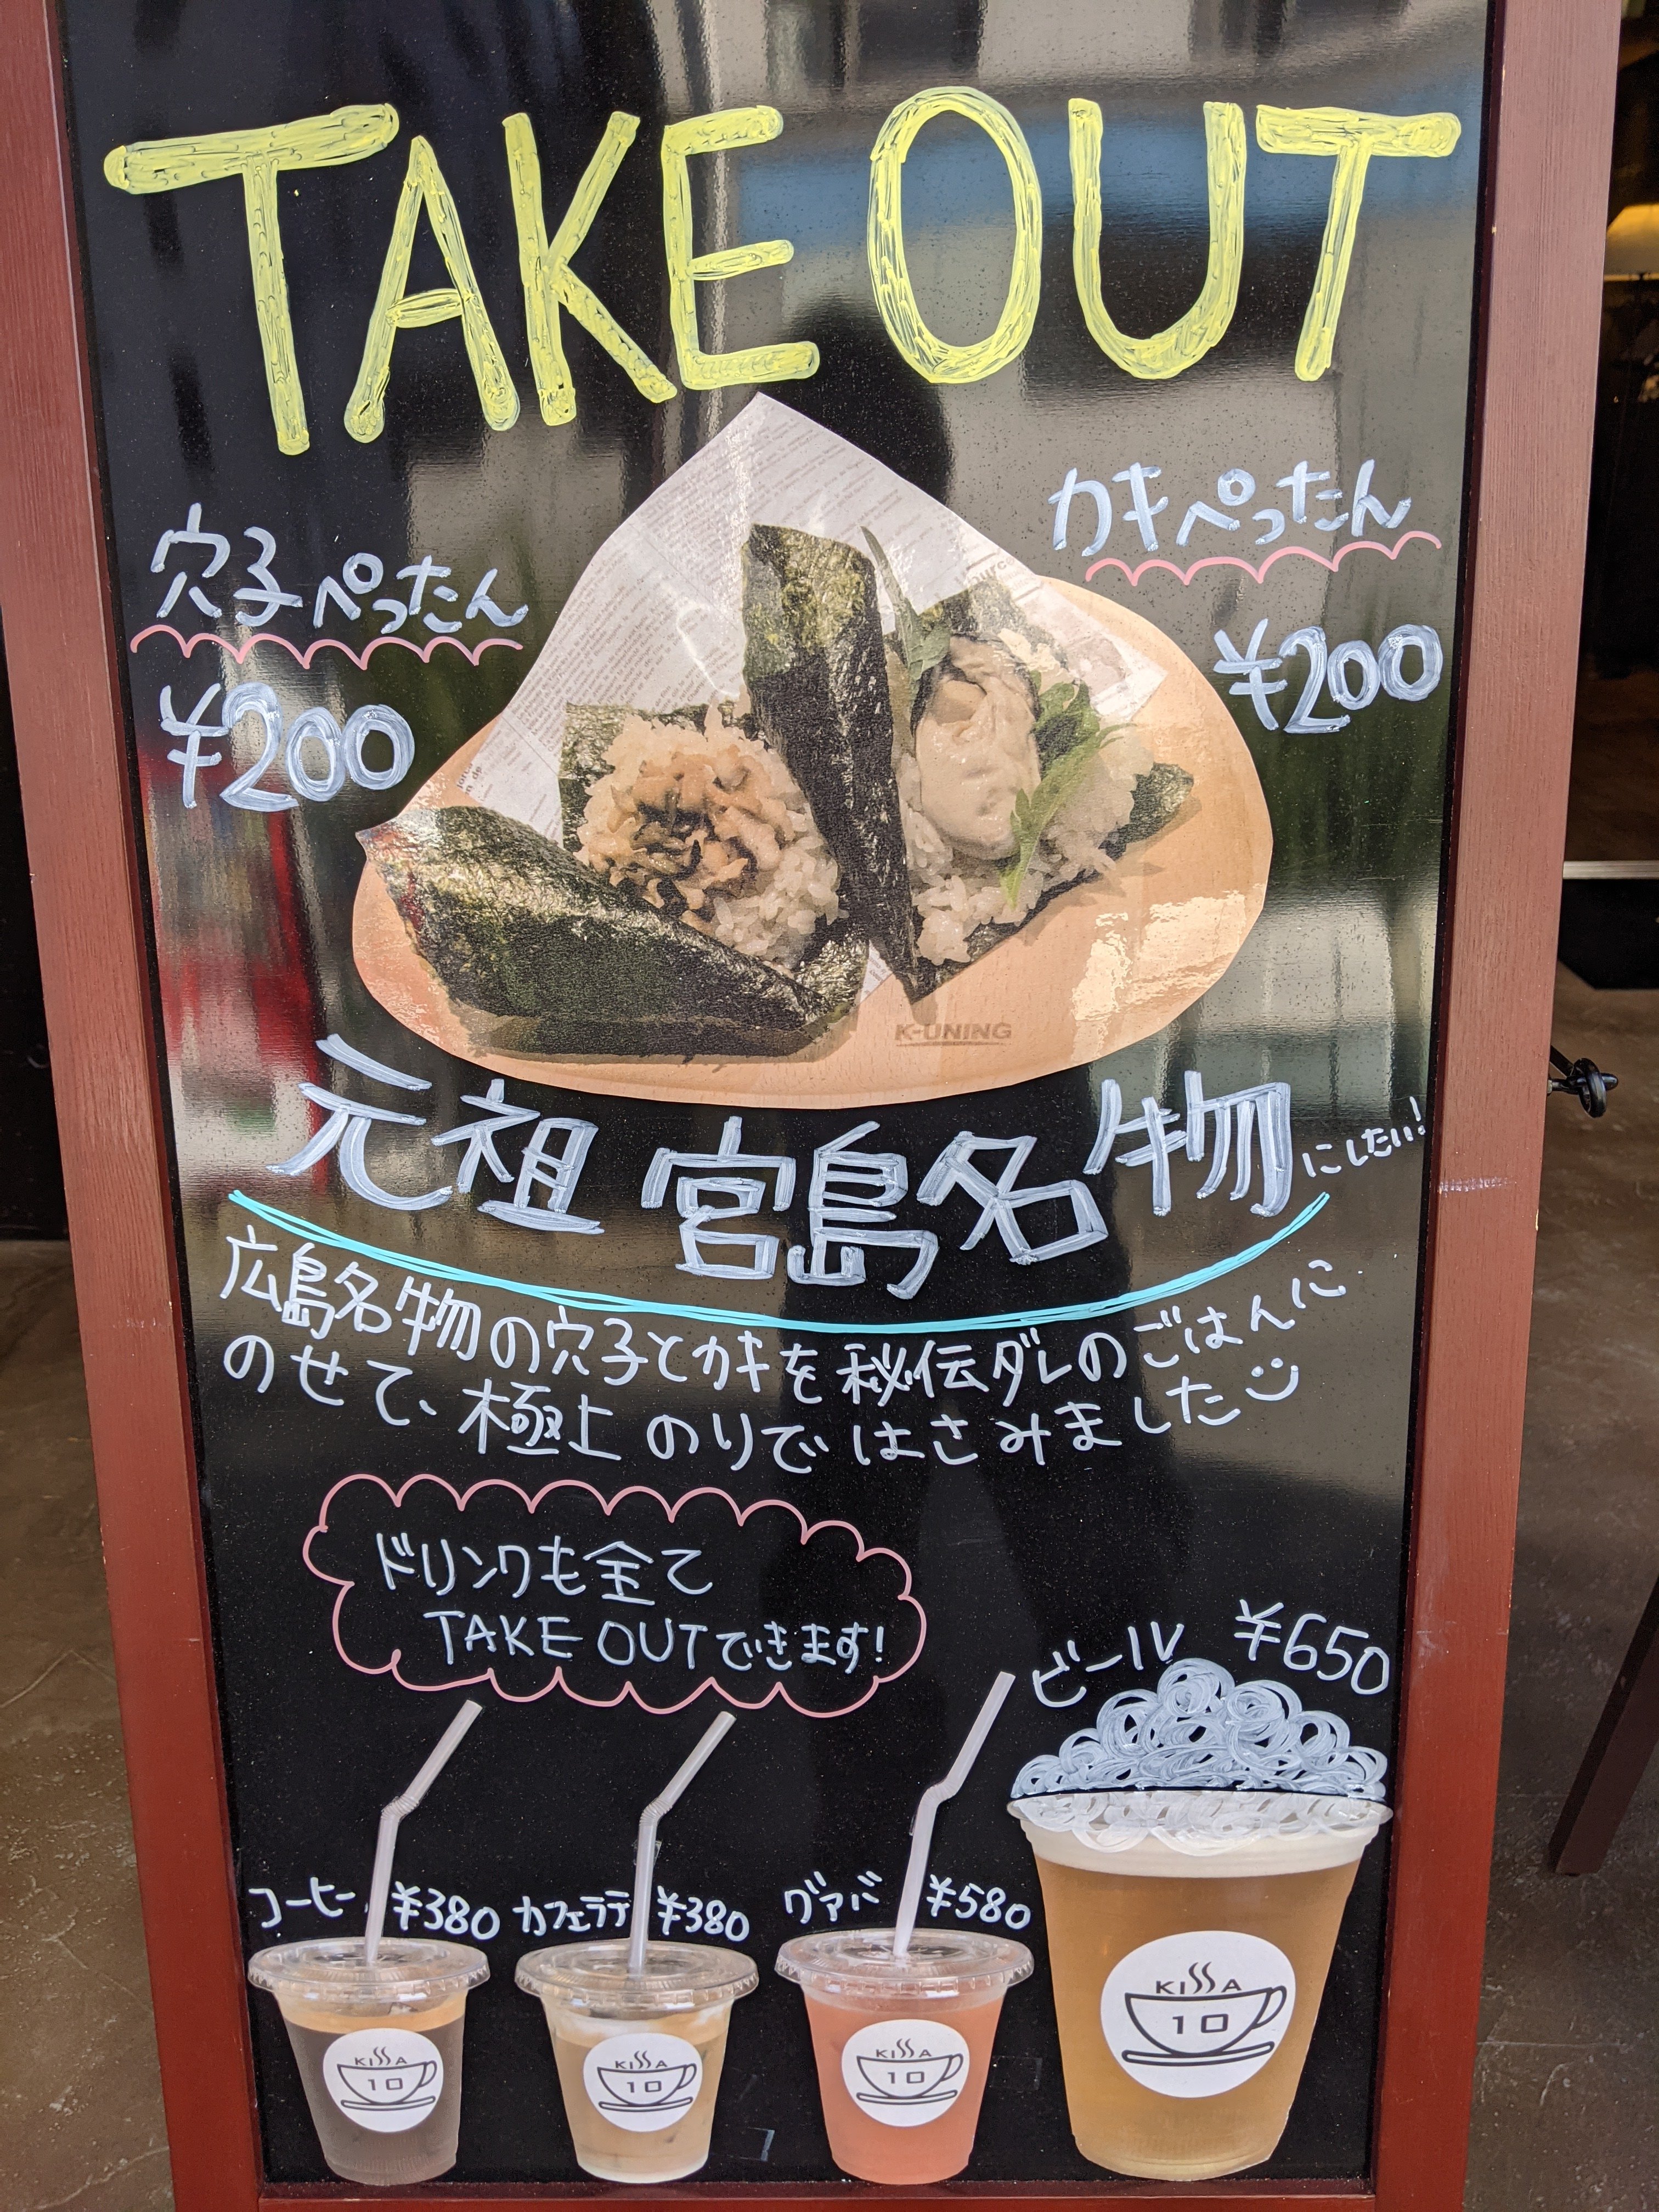 TAKE OUT
穴子ぺったん
¥200
カキぺったん
¥200
K-UNING
元祖 宮島名物にしたい!
広島名物の穴子とカキを秘伝ダレのごはんに
のせて、極上のりではさみました
ドリンクも全て
TAKE OUTできます!
ビール ¥650
コーヒー ¥380
カフェラテ ¥380
グァバ ¥580
KISSA
10
KISSA
10
KISSA
10
KISSA
10